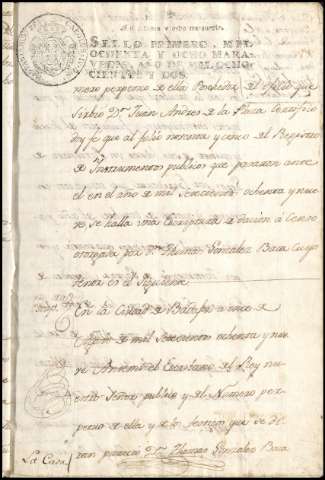 SELLO PRIMERO, MIL
OCHENTA Y OCHO MARA-
VEDIS, AÑO DE MIL OCHO-
CIENTOS Y DOS.
mero perpetuo de ella Poseedor el oficio que
sirbio Dn. Juan Andres de la Certifico
doy fe que al folio noventa y cinco del Registro
de Instrumentos publicos que pasaron ante
el en el año de mil setecientos ochenta y nue
ve se halla una Escriptura de dacion á Censo
otorgada por Dn. Thomas Gonzalez Baca cuyo
tenor es el siguiente
En la Ciudad de a once de
de mil setecientos ochenta y nue
ve Antemi el Escribano del Rey nu
estro Señor publico y del Numero per
petuo de ella y testigos que se di
ran parecio Dn. Thomas Gonzalez Baca
La Casa